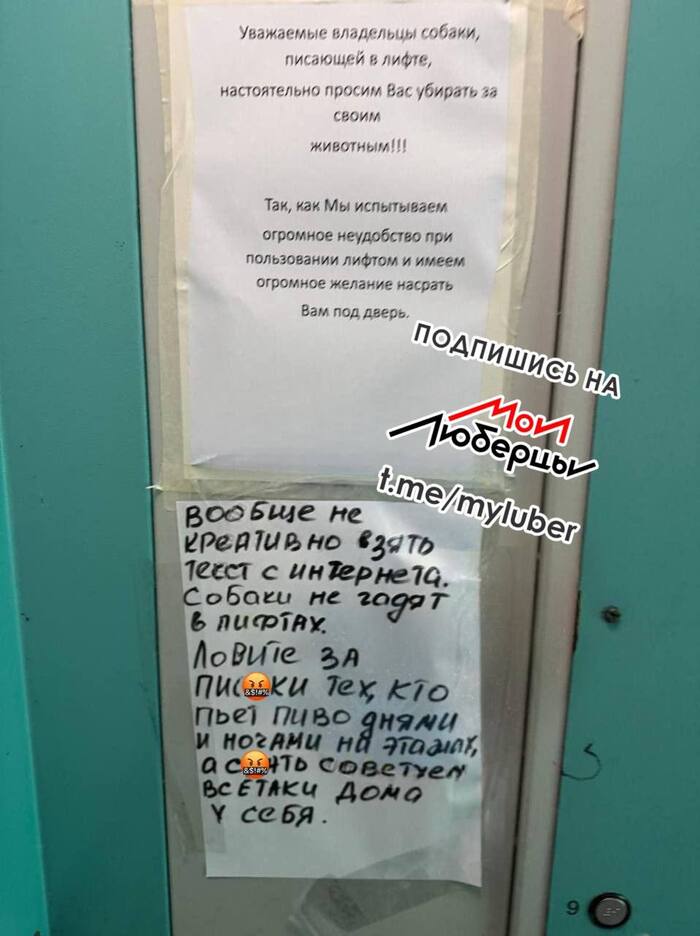 Уважаемые владельцы собаки,
писающей в лифте,
настоятельно просим Вас убирать за
своим
животным!!!
Так, как Мы испытываем
огромное неудобство при
пользовании лифтом и имеем
огромное желание насрать
Вам под дверь.
ПОДПИШИСЬ НА
Мои
Люберцы
t.me/myluber
вообще не
креативно взять
текст с интернета.
Собаки не гадят
в лифтах.
Ловите за
пис&$!#%ки тех, кто
пьет пиво днями
и ночами на этажах,
а с&$!#%ть советуем
всётаки дома
у себя.
9